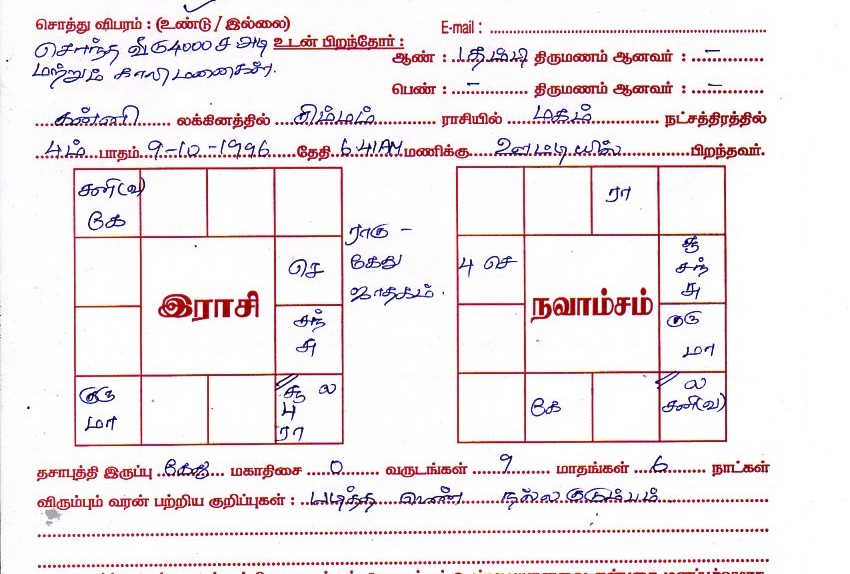 சொத்து விபரம் : (உண்டு / இல்லை)
E-mail :
சொந்த வீடு 4000 ச அடி
உடன் பிறந்தோர் :
மற்றும் காலிமனைகள்.
ஆண் : 1 தம்பி திருமணம் ஆனவர் : –
பெண் : – திருமணம் ஆனவர் : –
கன்னி லக்கினத்தில் சிம்மம் ராசியில் மகம் நட்சத்திரத்தில்
4ம் பாதம் 9-10-1996 தேதி 6.41AM மணிக்கு பிறந்தவர்.
சனி(வ)
கே
செ
சந்
சு
குரு
மா
சூ ல
பு
ரா
இராசி
ராகு –
கேது
ஜாதகம்.
ரா
பு செ
சூ
சந்
சு
குரு
மா
ல
சனி(வ)
கே
நவாம்சம்
தசாபுத்தி இருப்பு கேது மகாதிசை 0 வருடங்கள் 9 மாதங்கள் 6 நாட்கள்
விரும்பும் வரன் பற்றிய குறிப்புகள் : படித்த பெண் நல்ல குடும்பம்.